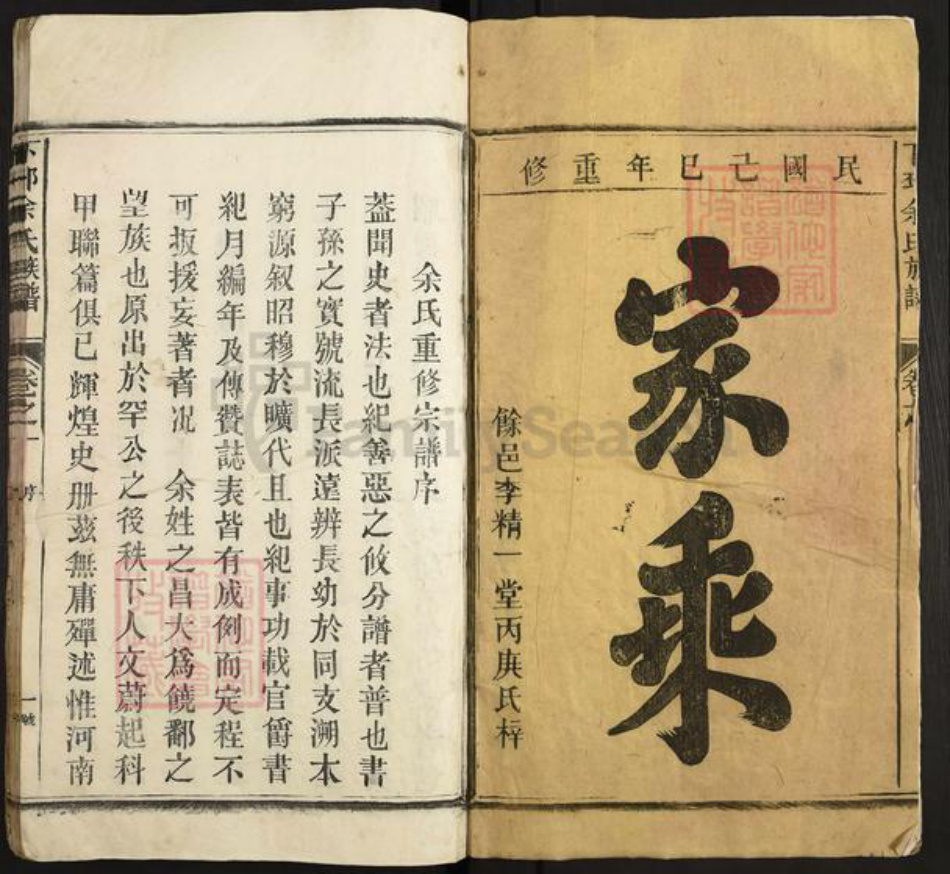 民國己巳年重修
家乘
餘邑李精一堂丙庚氏梓
余氏族譜
余氏重修宗譜序
蓋聞史者法也紀善惡之攸分譜者普也書
子孫之實號流長派遠辨長幼於同支溯本
窮源叙昭穆於曠代且也紀事功載官爵書
紀月編年及傳贊誌表皆有成例而定程不
可扳援妄著者况 余姓之昌大為饒鄱之
望族也原出於罕公之後秩下人文蔚起科
甲聯篇俱已輝煌史册茲無庸殫述惟河南
下邳余氏族譜
卷之一
序
一號
FamilySearch